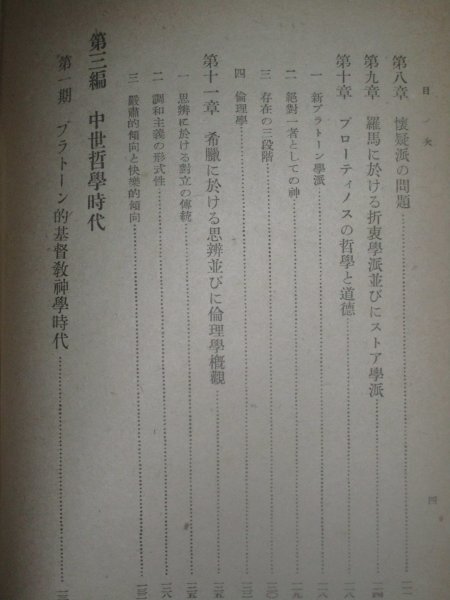 目次
第八章 懷疑派の問題
第九章 羅馬に於ける折衷學派並びにストア學派
第十章 プローティノスの哲學と道德
一 新プラトーン學派
二 絕對一者としての神
三 存在の三段階
四 倫理學
第十一章 希臘に於ける思辨並びに倫理學槪觀
一 思辨に於ける對立の傳統
二 調和主義の形式性
三 嚴肅的傾向と快樂的傾向
第三編 中世哲學時代
第一期 プラトーン的基督敎神學時代
四